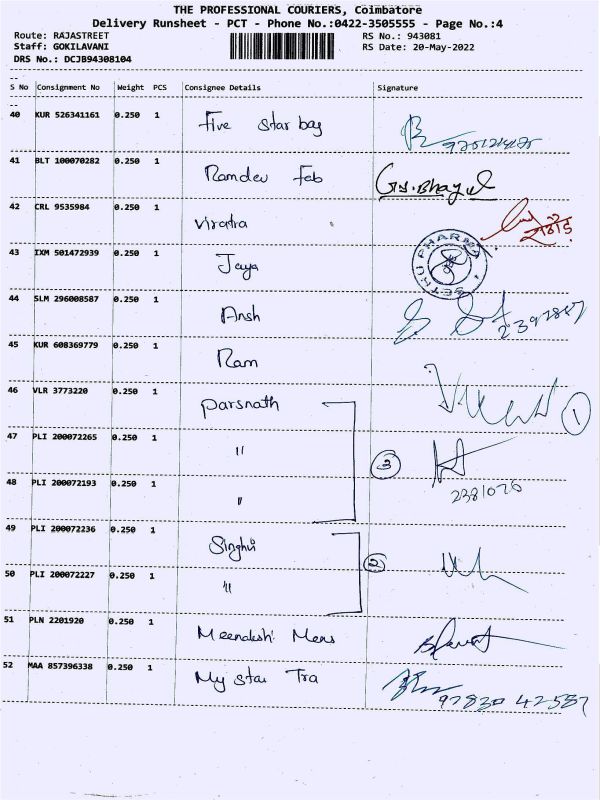 THE PROFESSIONAL COURIERS, Coimbatore
Delivery Runsheet - PCT - Phone No.:0422-3505555 - Page No.:4
Route: RAJASTREET RS No.: 943081
Staff: GOKILAVANI RS Date: 20-May-2022
DRS No.: DCJB94308104
S No Consignment No Weight PCS Consignee Details Signature
40 KUR 526341161 0.250 1 Five star bag
41 BLT 100070282 0.250 1 Ramdev Fab
42 CRL 9535984 0.250 1 Viratra
43 IXM 501472939 0.250 1 Jaya SETHU PHARMA
44 SLM 296008587 0.250 1 Ansh
45 KUR 608369779 0.250 1 Ram
46 VLR 3773220 0.250 1 Parsnath 1
47 PLI 200072265 0.250 1 " 3
48 PLI 200072193 0.250 1 " 2381026
49 PLI 200072236 0.250 1 Singhvi
50 PLI 200072227 0.250 1 " 2
51 PLN 2201920 0.250 1 Meenakshi Mens
52 MAA 857396338 0.250 1 My star Tra 97830 42587